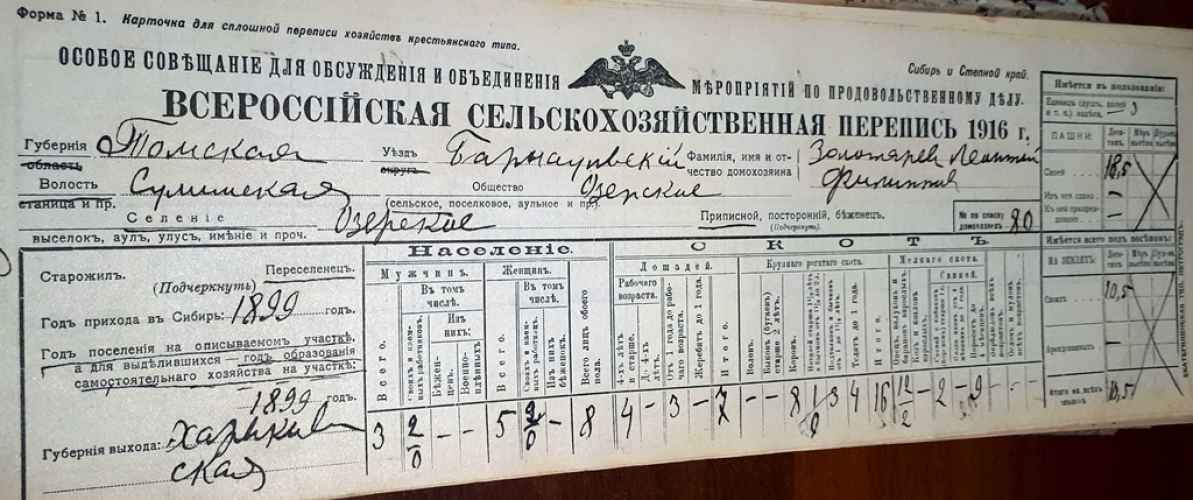 Форма № 1. Карточка для сплошной переписи хозяйствъ крестьянскаго типа.
ОСОБОЕ СОВѢЩАНІЕ ДЛЯ ОБСУЖДЕНІЯ И ОБЪЕДИНЕНІЯ МѢРОПРІЯТІЙ ПО ПРОДОВОЛЬСТВЕННОМУ ДѢЛУ.
Сибирь и Степной край.
ВСЕРОССІЙСКАЯ СЕЛЬСКОХОЗЯЙСТВЕННАЯ ПЕРЕПИСЬ 1916 г.
Губернія Томская Уѣздъ Барнаульскій Фамилія, имя и от- Золотарев Леонтий
область округа чество домохозяина Филиппов
Волость Сулимская Общество Озерское
станица и пр. (сельское, поселковое, аульное и пр.)
Селеніе Озерское Приписной, посторонній, бѣженецъ. № по списку домохозяевъ 80
выселокъ, аулъ, улусъ, имѣніе и проч. (Подчеркнуть)
Старожилъ. Переселенецъ.
(Подчеркнуть)
Годъ прихода въ Сибирь: 1899 годъ.
Годъ поселенія на описываемомъ участкѣ,
а для выдѣлившихся — годъ образованія
самостоятельнаго хозяйства на участкѣ:
1899 годъ.
Губернія выхода: Харьков
ская
Населеніе.
Мужчинъ. Женщинъ.
Въ томъ числѣ. Въ томъ числѣ.
Всего.
Изъ нихъ:
Бѣженцевъ.
Военноплѣнныхъ
Всего.
Изъ нихъ бѣженокъ.
Всего лицъ обоего пола.
3 2/0 — — 5 2/0 — 8
СКОТЪ
Лошадей. Крупнаго рогатаго скота. Мелкаго скота.
Рабочаго возраста.
4-хъ лѣтъ и старше.
До 4-хъ лѣтъ.
Отъ 1 года до рабочаго возраста.
Жеребятъ до 1 года.
Итого.
Воловъ.
Быковъ (бугаевъ) старше 2 лѣтъ.
Коровъ.
Телятъ до 1 года.
Итого.
Свиней.
4 — 3 — 7 — — 8 1/0 3 4 16 12/2 — 2 — 9 — — —
Имѣется въ пользованіи:
ПАШНИ.
Своей 18,5
Имѣется всего подъ посѣвами:
НА ЗЕМЛЯХЪ.
Своихъ 10,5
Арендованныхъ —
Итого на всѣхъ земляхъ 10,5